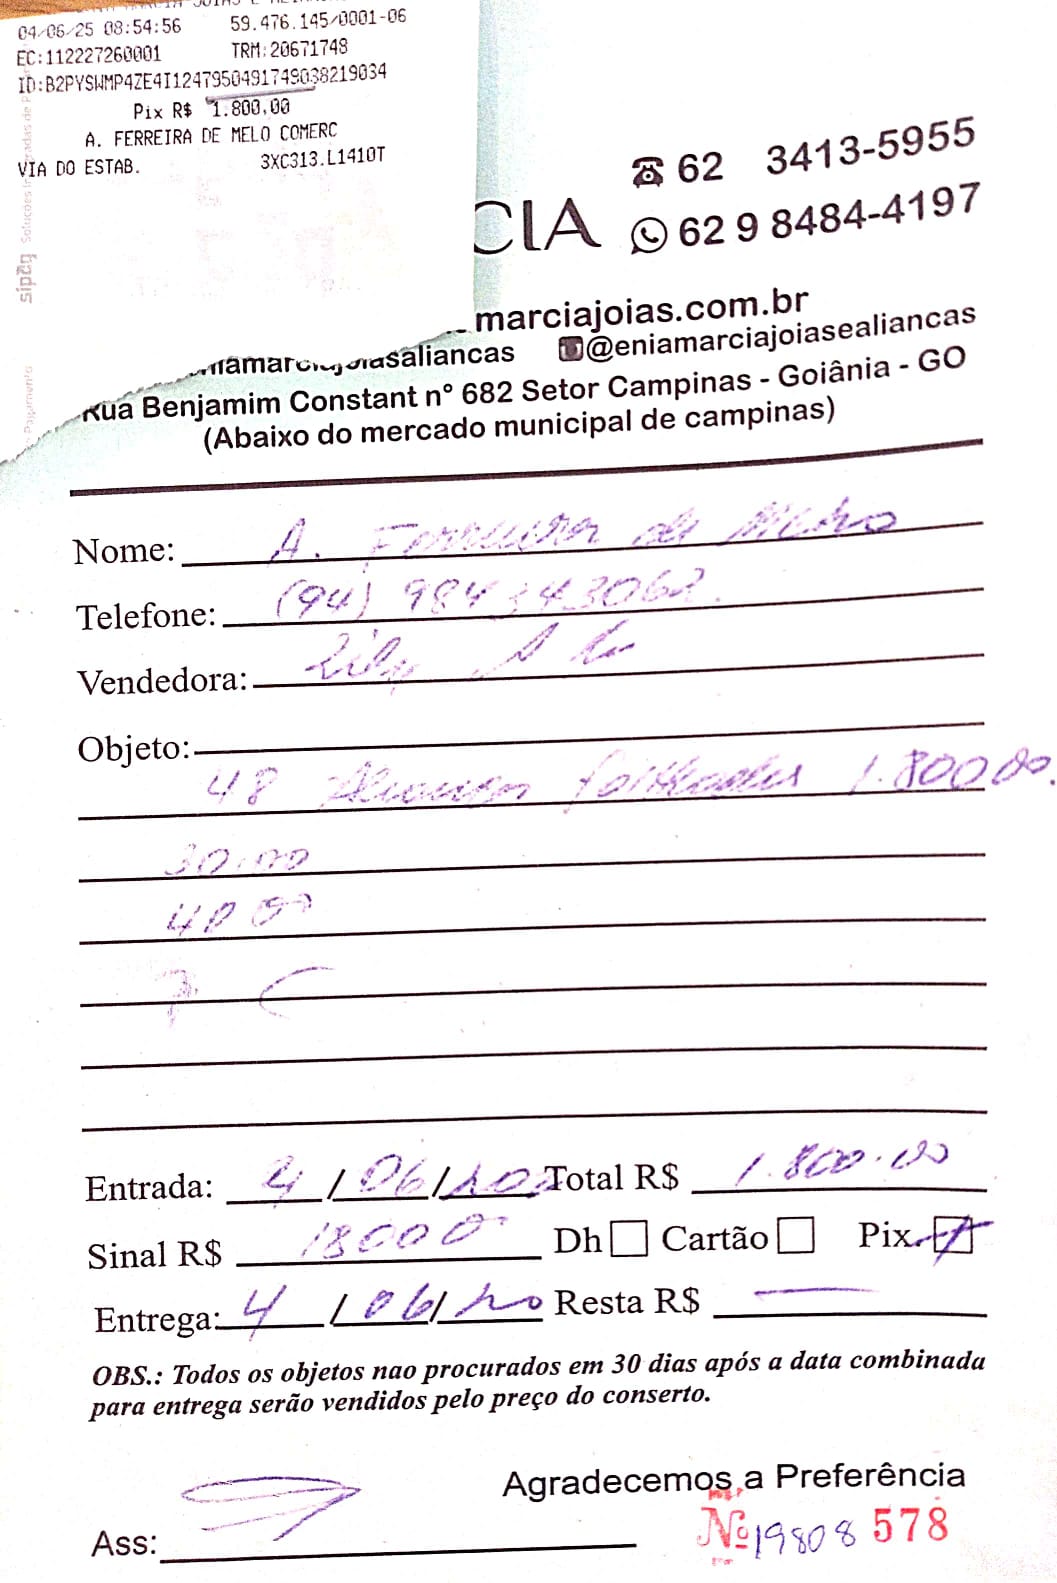 04/06/25 08:54:56 59.476.145/0001-06
EC:112227260001 TRM:20671748
ID:B2PYSWMP4ZE4I1247950491749038219034
Pix R$ 1.800,00
A. FERREIRA DE MELO COMERC
VIA DO ESTAB. 3XC313.L1410T
sipag
62 3413-5955
CIA 62 9 8484-4197
marciajoias.com.br
@eniamarciajoiasealiancas
Rua Benjamim Constant n° 682 Setor Campinas - Goiânia - GO
(Abaixo do mercado municipal de campinas)
Nome: A. Ferreira de Melo
Telefone: (94)
Vendedora:
Objeto:
48 folheadas 1.800 00.
30.00
40 00
Entrada: 4/06/20 Total R$ 1.800.00
Sinal R$ 1800 0 Dh Cartão Pix
Entrega: 4/06/ Resta R$
OBS.: Todos os objetos nao procurados em 30 dias após a data combinada
para entrega serão vendidos pelo preço do conserto.
Agradecemos a Preferência
Ass: Nº 19808 578